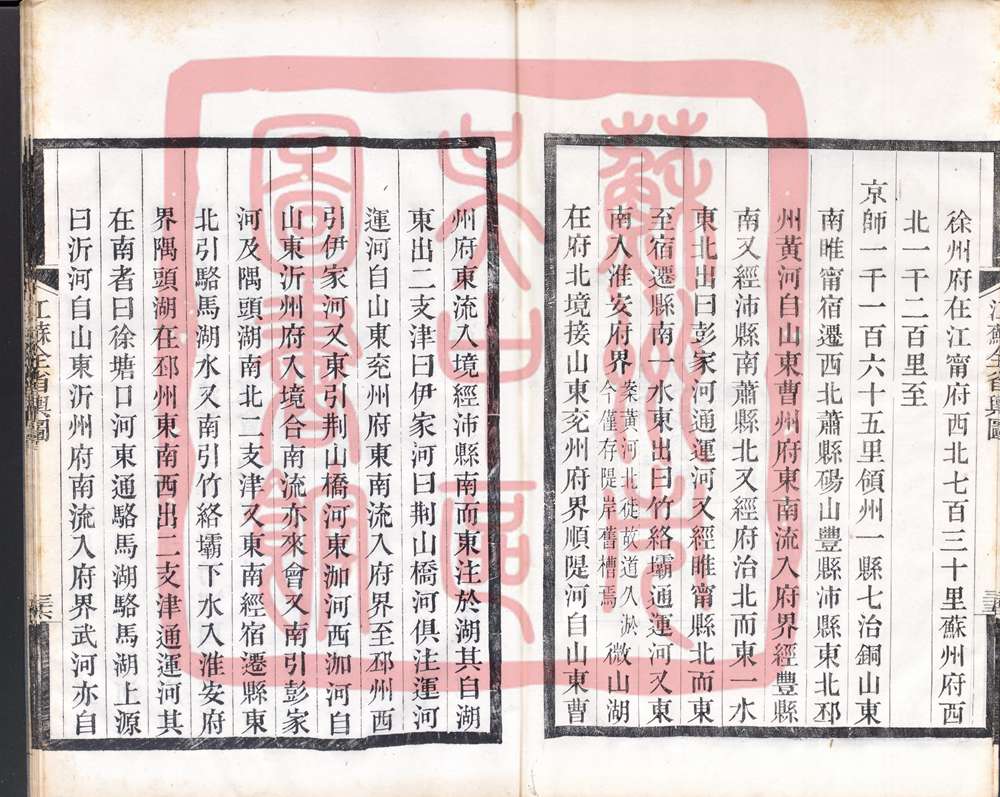 徐州府在江甯府西北七百三十里蘇州府西
北一千二百里至
京師一千一百六十五里領州一縣七治銅山東
南睢甯宿遷西北蕭縣碭山豐縣沛縣東北邳
州黃河自山東曹州府東南流入府界經豐縣
南又經沛縣南蕭縣北又經府治北而東一水
東北出曰彭家河通運河又經睢甯縣北而東
至宿遷縣南一水東出曰竹絡壩通運河又東
南入淮安府界案黃河北徙故道久淤今僅存隄岸舊槽焉微山湖
在府北境接山東兖州府界順隄河自山東曹
江蘇全省輿圖
三五
州府東流入境經沛縣南而東注於湖其自湖
東出二支津曰伊家河曰荆山橋河俱注運河
運河自山東兖州府東南流入府界至邳州西
引伊家河又東引荆山橋河東泇河西泇河自
山東沂州府入境合南流亦來會又南引彭家
河及隅頭湖南北二支津又東南經宿遷縣東
北引駱馬湖水又南引竹絡壩下水入淮安府
界隅頭湖在邳州東南西出二支津通運河其
在南者曰徐塘口河東通駱馬湖駱馬湖上源
曰沂河自山東沂州府南流入府界武河亦自
江蘇全省輿圖
三六
蘇州市
吴中區
圖書館